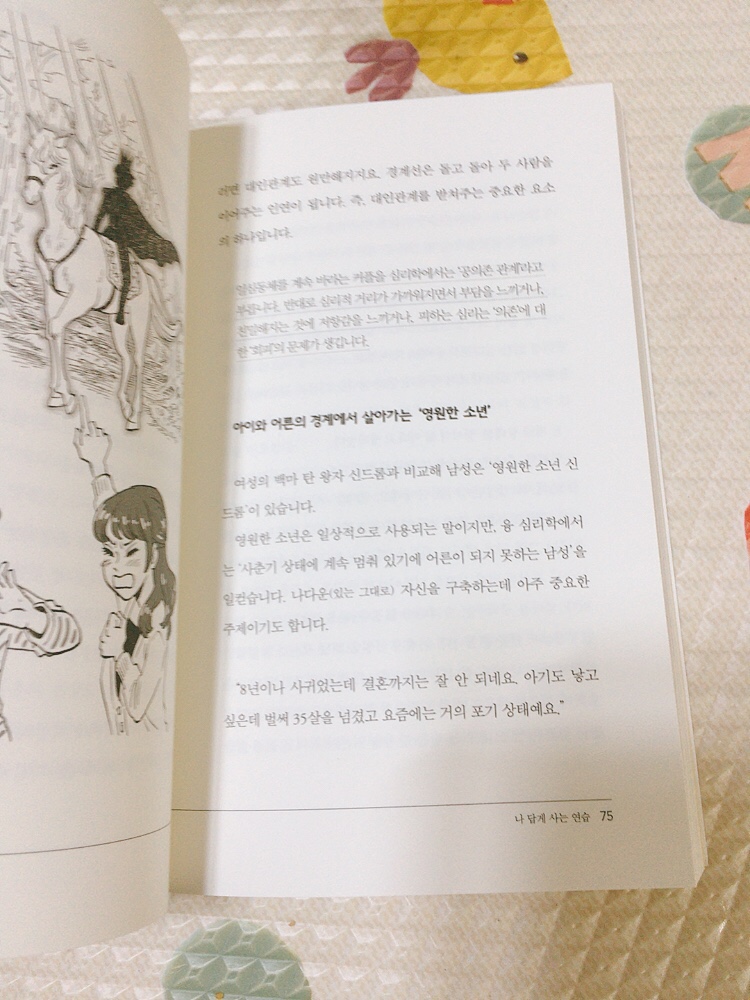 러면 대인관계도 원만해지지요. 경계선은 돌고 돌아 두 사람을
이어주는 인연이 됩니다. 즉, 대인관계를 받쳐주는 중요한 요소
의 하나입니다.
일심동체를 계속 바라는 커플을 심리학에서는 '공의존 관계'라고
부릅니다. 반대로 심리적 거리가 가까워지면서 부담을 느끼거나,
친밀해지는 것에 저항감을 느끼거나, 피하는 심리는 '의존'에 대
한 '회피'의 문제가 생깁니다.
아이와 어른의 경계에서 살아가는 '영원한 소년'
여성의 백마 탄 왕자 신드롬과 비교해 남성은 '영원한 소년 신
드롬'이 있습니다.
영원한 소년은 일상적으로 사용되는 말이지만, 융 심리학에서
는 '사춘기 상태에 계속 멈춰 있기에 어른이 되지 못하는 남성'을
일컫습니다. 나다운(있는 그대로) 자신을 구축하는데 아주 중요한
주제이기도 합니다.
"8년이나 사귀었는데 결혼까지는 잘 안 되네요. 아기도 낳고
싶은데 벌써 35살을 넘겼고 요즘에는 거의 포기 상태예요."
나 답게 사는 연습 75